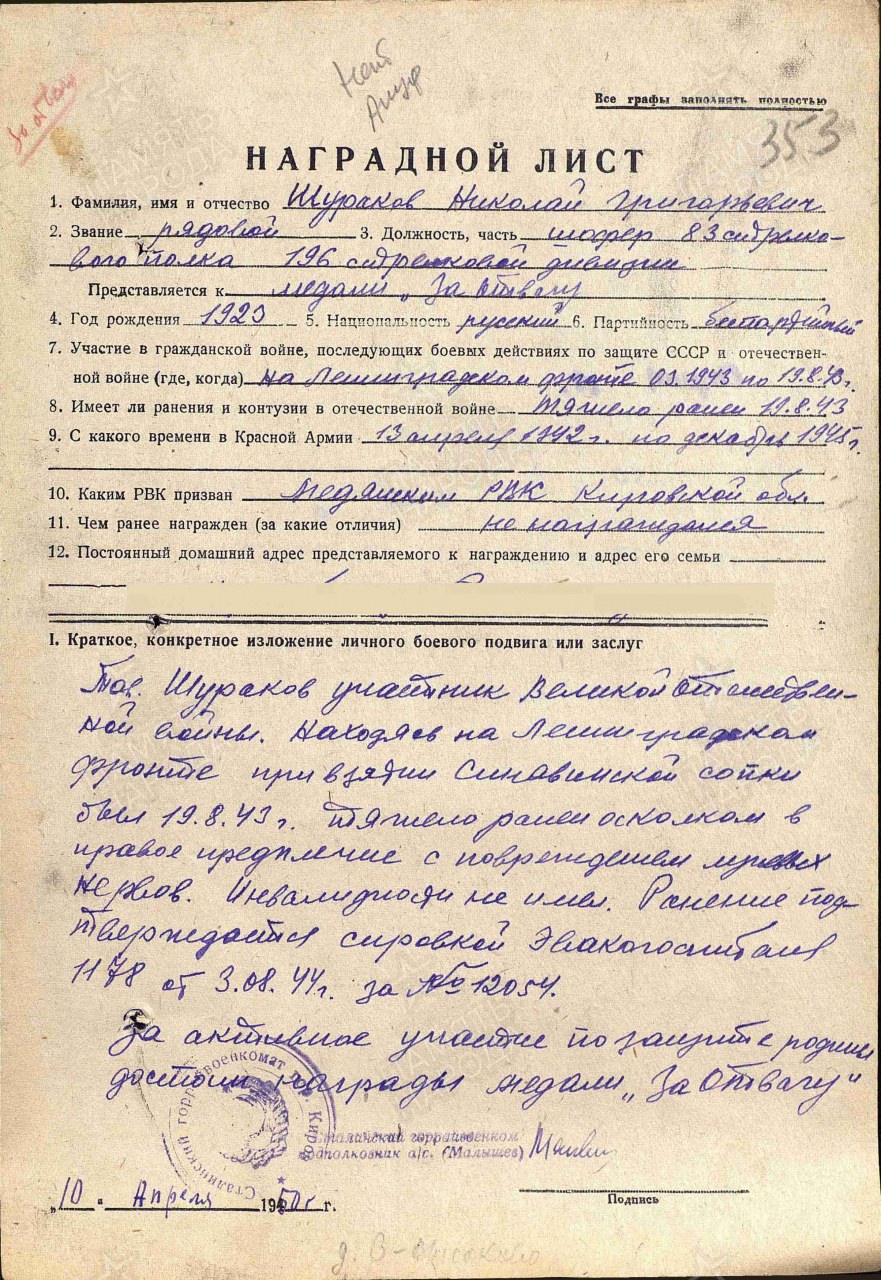 за отвагу
Нет
Все графы заполнять полностью
353
НАГРАДНОЙ ЛИСТ
1. Фамилия, имя и отчество Шураков Николай Григорьевич
2. Звание рядовой 3. Должность, часть шофер 83 стрелко-
вого полка 196 стрелковой дивизии
Представляется к медали „За Отвагу
4. Год рождения 1923 5. Национальность русский 6. Партийность беспартийный
7. Участие в гражданской войне, последующих боевых действиях по защите СССР и отечествен-
ной войне (где, когда) на Ленинградском фронте 03.1943 по 19.8.43г.
8. Имеет ли ранения и контузии в отечественной войне тяжело ранен 19.8.43
9. С какого времени в Красной Армии 13 апреля 1942 г. по декабрь 1945г.
10. Каким РВК призван Медянским РВК Кировской обл
11. Чем ранее награжден (за какие отличия) не награждался
12. Постоянный домашний адрес представляемого к награждению и адрес его семьи
I. Краткое, конкретное изложение личного боевого подвига или заслуг
Тов. Шураков участник Великой Отечествен-
ной войны. Находясь на Ленинградском
фронте при взятии Синавинской сопки
был 19.8.43 г. тяжело ранен осколком в
правое предплечие с повреждением
нервов. Инвалидности не имел. Ранение под-
тверждается справкой Эвакогоспиталя
1178 от 3.08.44г. за № 12054.
За активное участие по защите родины
достоин награды медали „За Отвагу"
Сталинский горрайвоенкомат г. Киров
Сталинский горрайвоенком
подполковник а/с. (Малышев)
Подпись
„10" Апреля 1950 г.